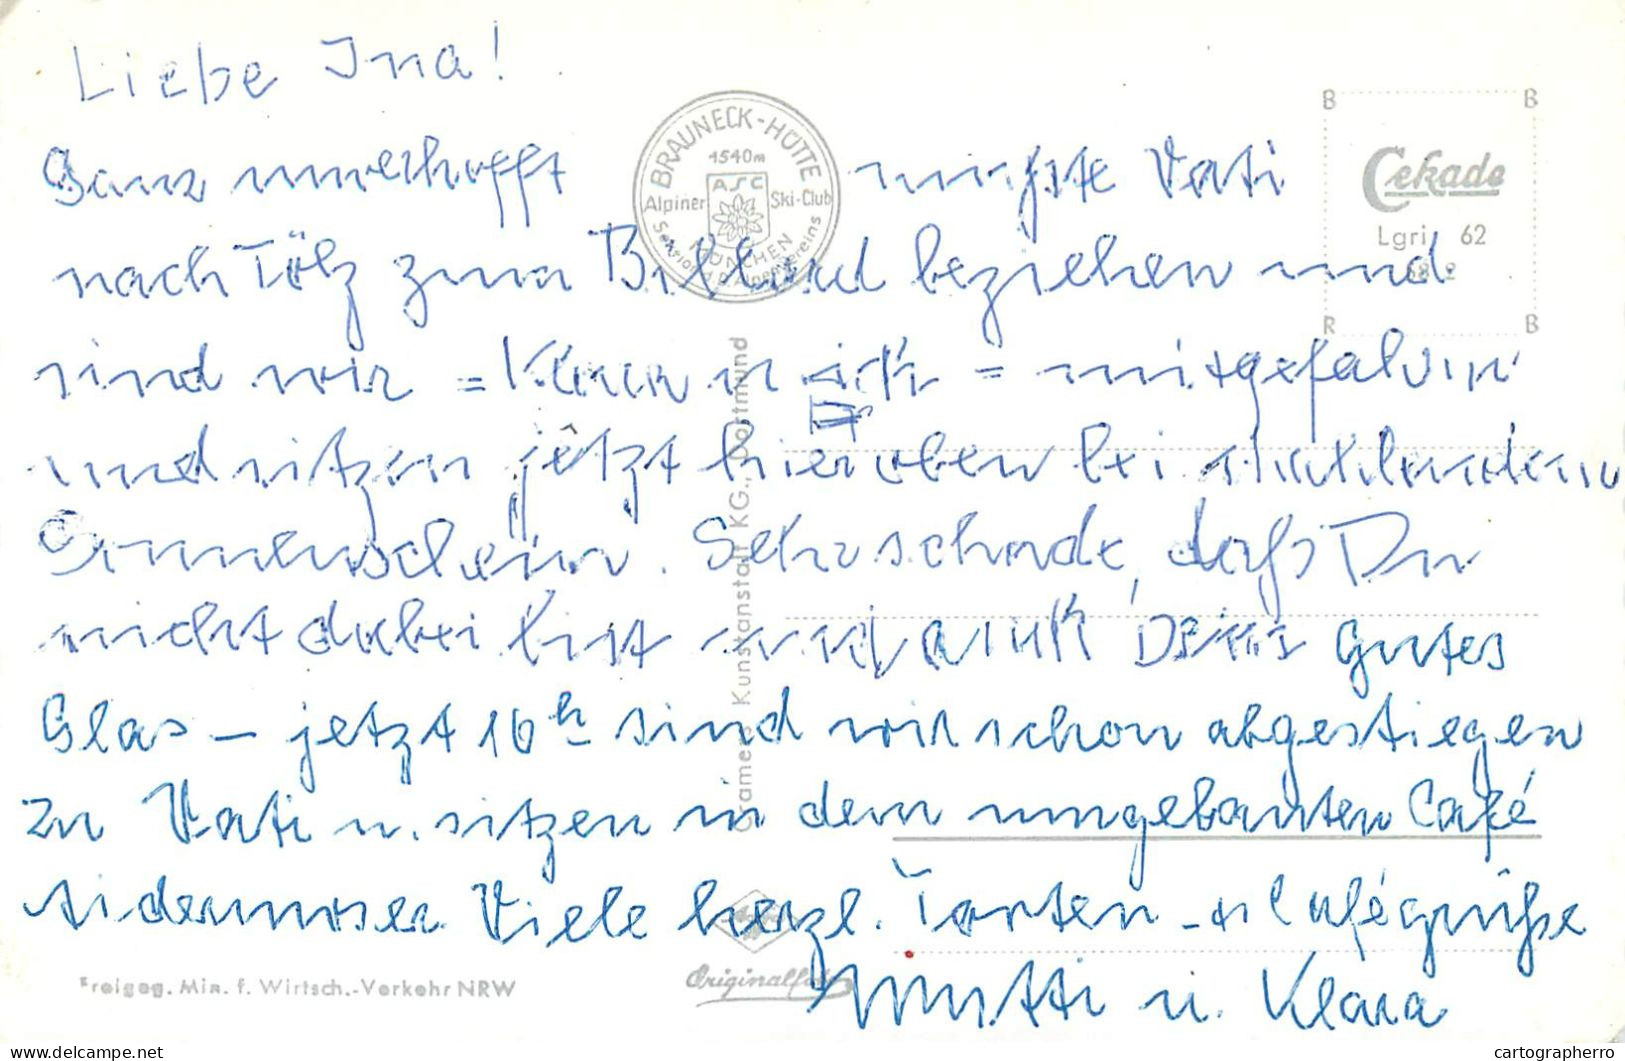 Liebe Ina!
Ganz unverhofft mußte Vati
nach Tölz zum Billard beziehen und
sind wir = Klara u ich = mitgefahren
und sitzen jetzt hier oben bei strahlendem
Sonnenschein. Sehr schade, daß Du
nicht dabei bist und auch Dein gutes
Glas – jetzt 16 h sind wir schon abgestiegen
zu Vati u. sitzen in dem umgebauten Café
Viele herzl. Torten - u Cafégrüße
Mutti u. Klara
BRAUNECK-HÜTTE
1540m
ASC
Alpiner Ski-Club
MÜNCHEN
Sektion d. D. Alpenvereins
B B
Cekade
Lgri 62
R B
Cramers Kunstanstalt KG., Dortmund
Freigeg. Min. f. Wirtsch.-Verkehr NRW
Originalfoto
delcampe.net
cartographerro